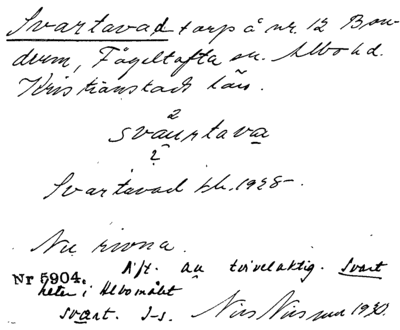 Svartavad torp å nr. 12 Bon-
derum, Fågeltofta sn. Albo hd.
Kristianstads län.
2
svaurtava
2
Svartavad blr. 1928-.
Nu rivna.
Nr 5904. au tvivelaktig. Svart
heter i Albomålet
svart. I-s. Nils Nilsson 1930.